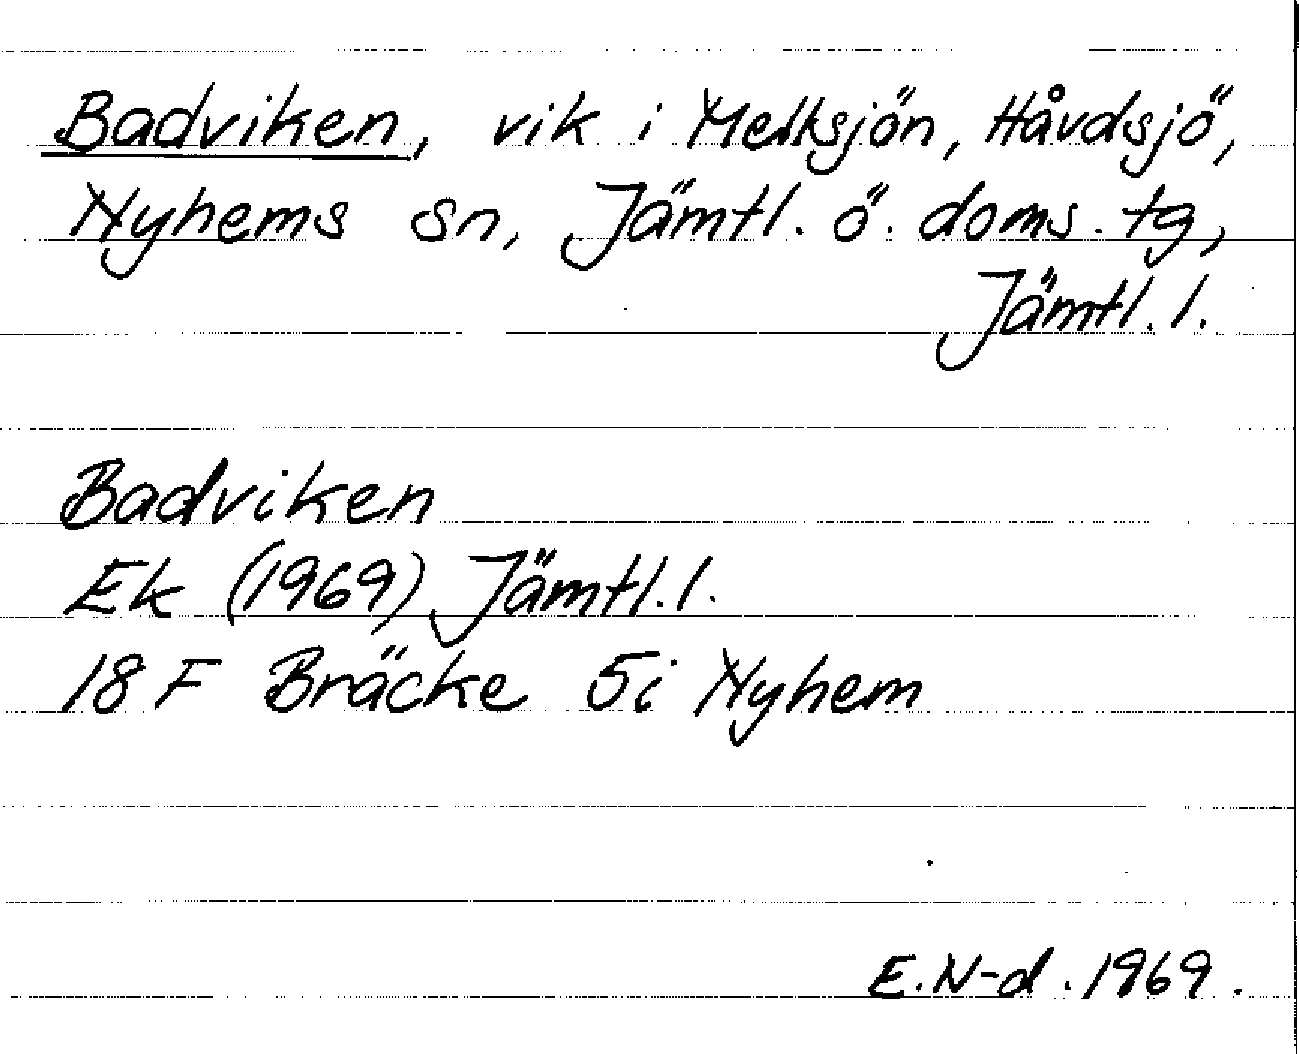 Badviken, vik i Mellsjön, Håvdsjö,
Nyhems sn, Jämtl. ö. doms. tg,
Jämtl. l.
Badviken
Ek (1969) Jämtl. l.
18 F Bräcke 5i Nyhem
E. N-d. 1969.